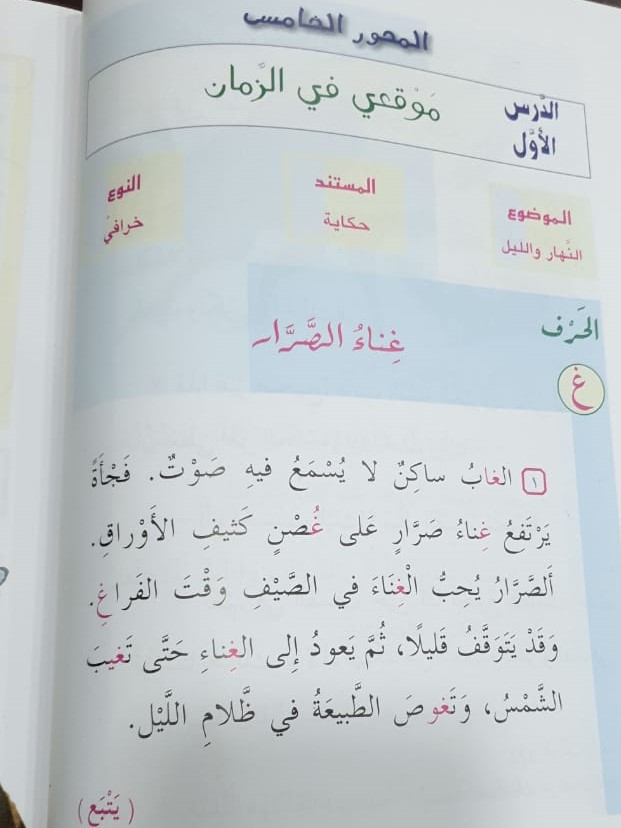 المحور الخامس
الدّرس الأوّل
مَوْقعي في الزّمان
الموضوع
النَّهار والليل
المستند
حكاية
النوع
خرافيّ
الحَرْف
غ
غِناءُ الصَّرَّار
١ الغابُ ساكِنٌ لا يُسْمَعُ فيهِ صَوْتٌ. فَجْأَةً
يَرْتَفِعُ غِناءُ صَرَّارٍ عَلى غُصْنٍ كَثيفِ الأَوْراقِ.
أَلصَّرَّارُ يُحِبُّ الْغِنَاءَ في الصَّيْفِ وَقْتَ الفَراغِ.
وَقَدْ يَتَوَقَّفُ قَليلًا، ثُمَّ يَعودُ إِلى الغِناءِ حَتَّى تَغيبَ
الشَّمْسُ، وَتَغوصَ الطَّبيعَةُ في ظَلامِ اللَّيْل.
(يَتْبَع)